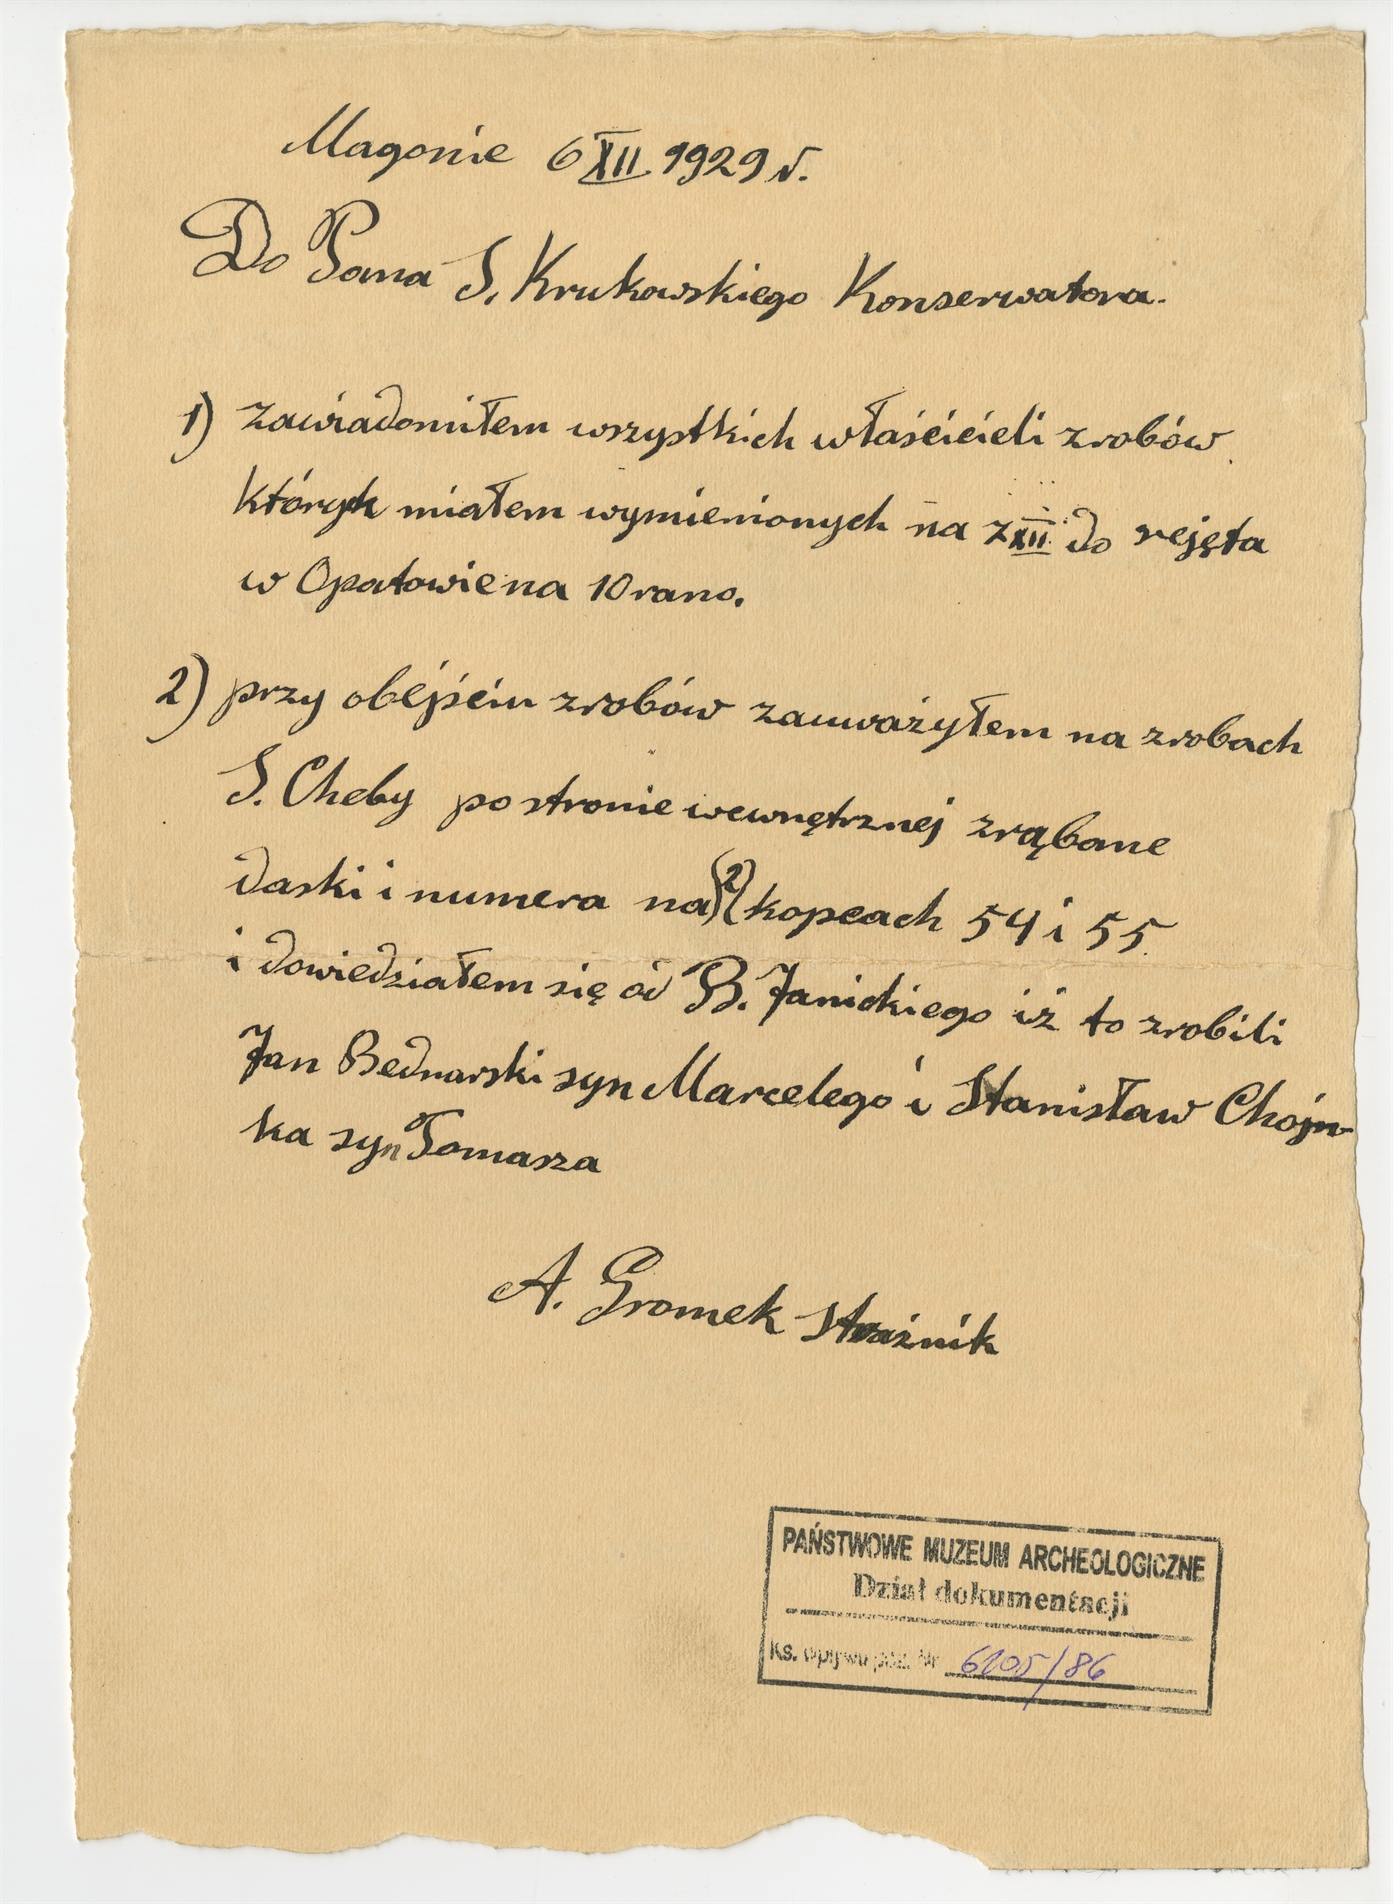 Magonie 6 XII 1929 r.
Do Pana S. Krukowskiego Konserwatora.
1) zawiadomiłem wszystkich właścicieli zrobów
których miałem wymienionych na 7 XII do rejęta
w Opatowie na 10 rano.
2) przy obejściu zrobów zauważyłem na zrobach
S. Cheby po stronie wewnętrznej zrąbane
daski i numera na (2) kopcach 54 i 55.
i dowiedziałem się od B. Janickiego iż to zrobili
Jan Bednarski syn Marcelego i Stanisław Chojn-
ka syn Tomasza
A. Gromek Strażnik
PAŃSTWOWE MUZEUM ARCHEOLOGICZNE
Dział dokumentacji
Ks. wpływu poz. Nr 6205/86